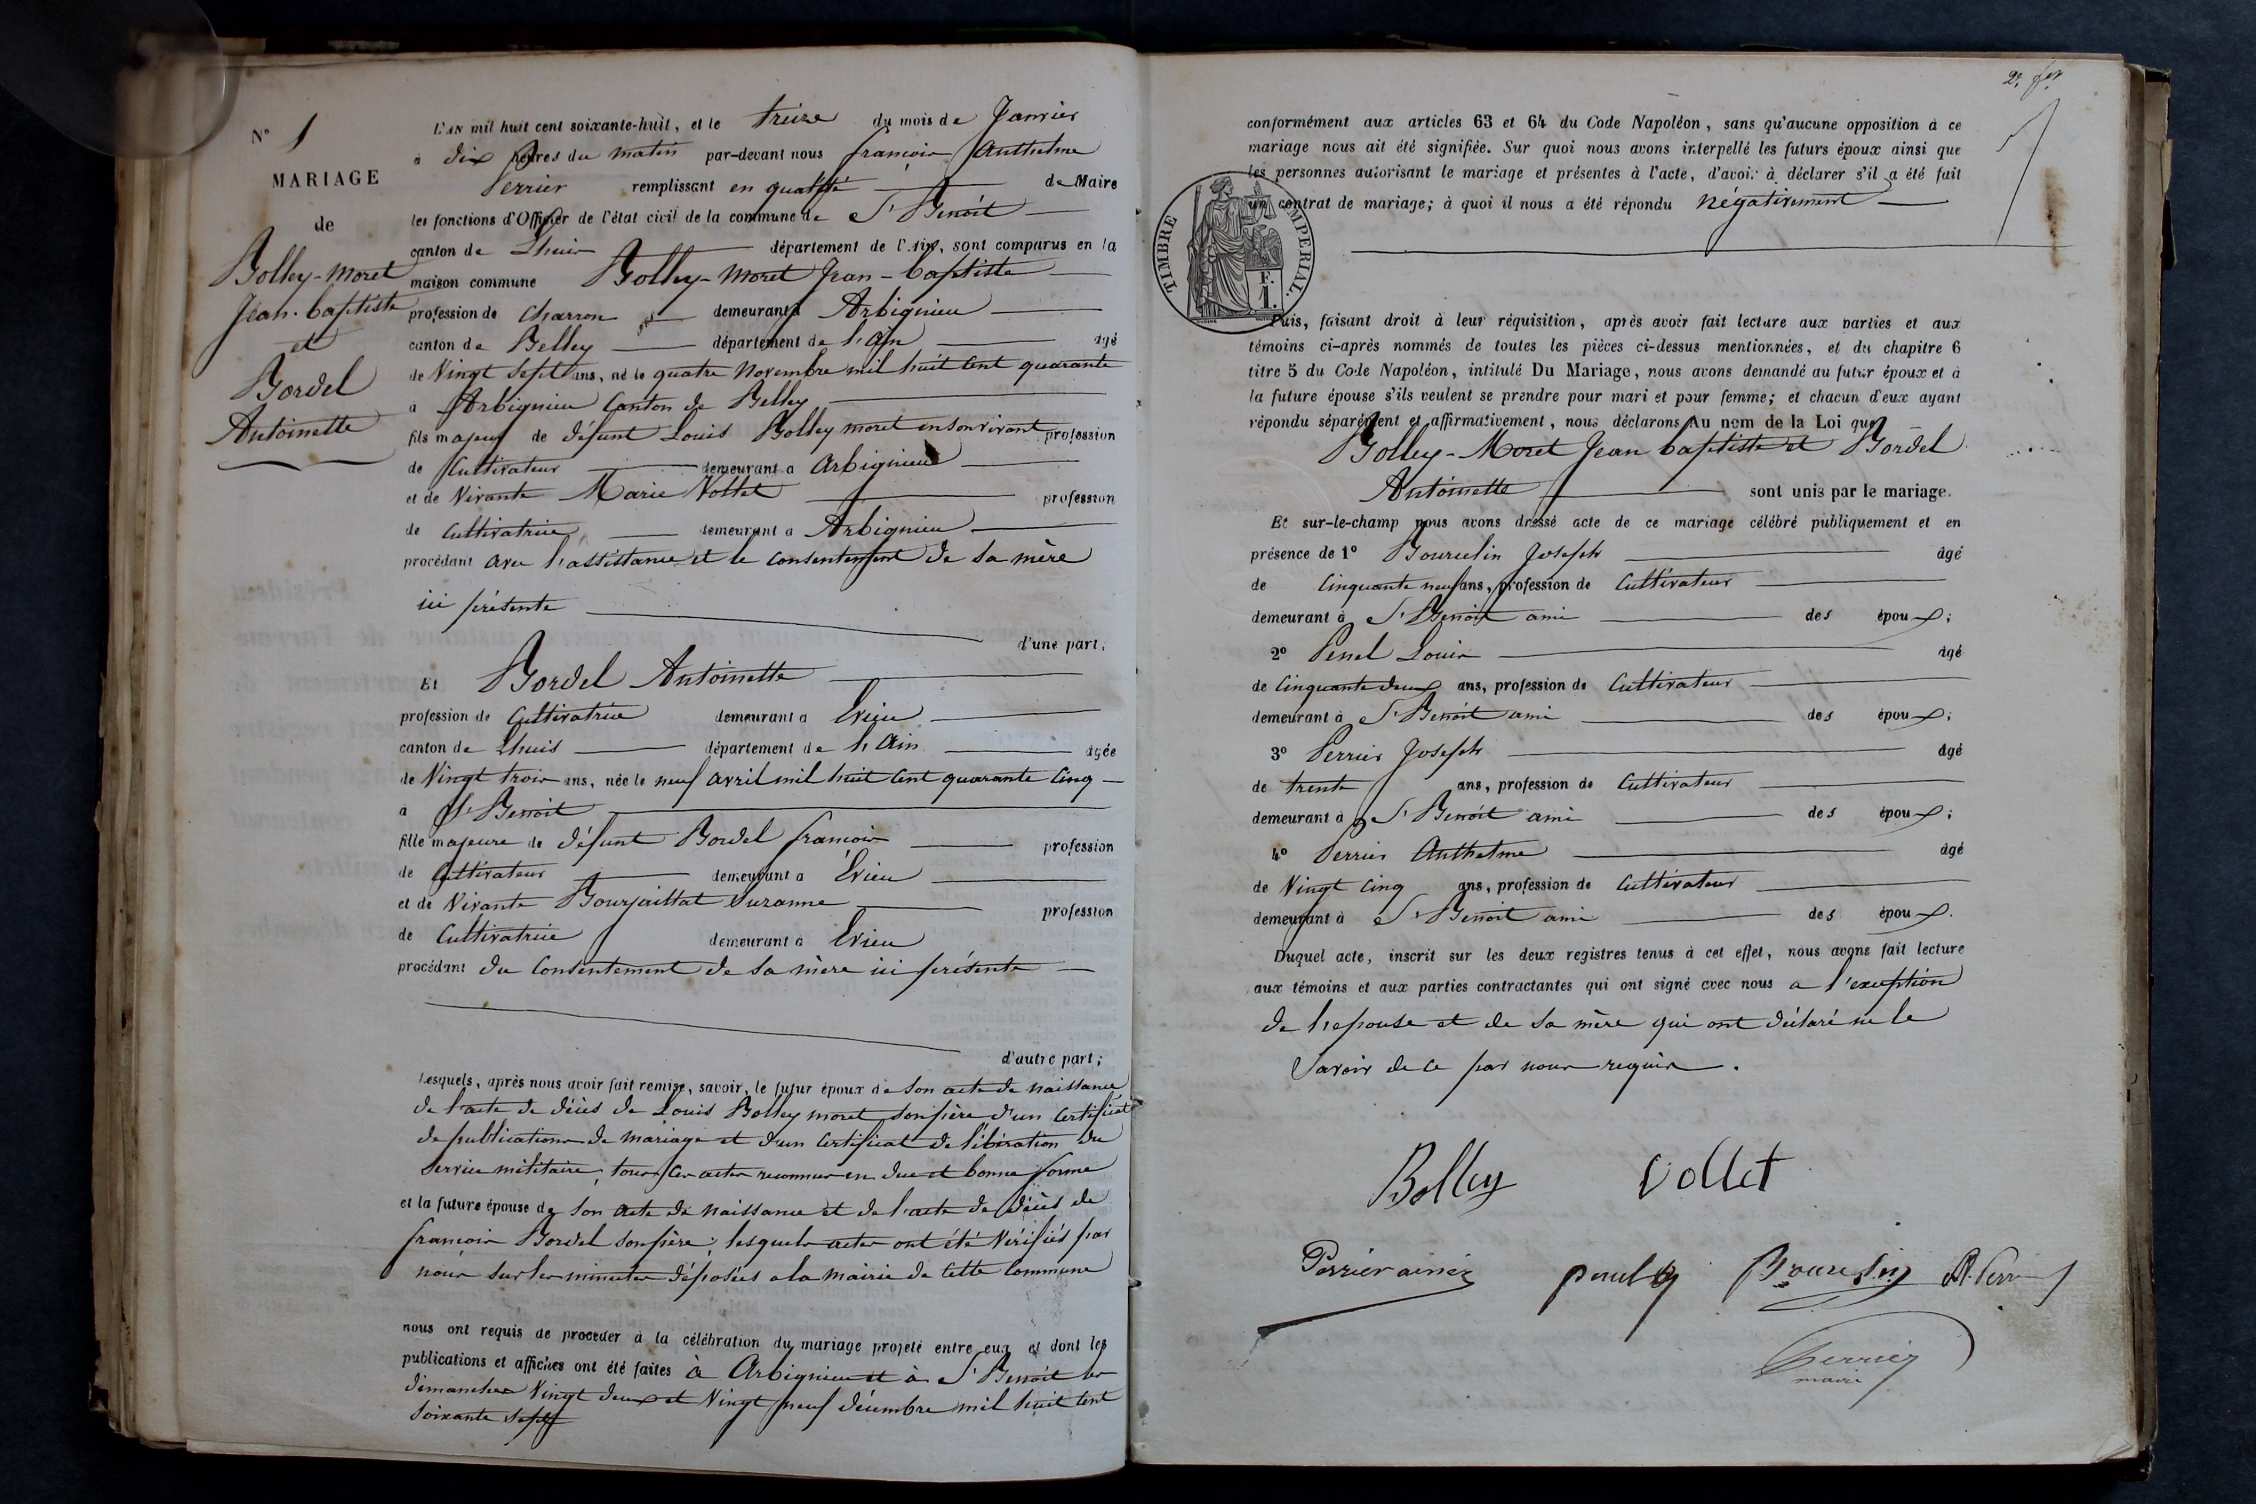 N° 1
MARIAGE
de
Bolley-Moret
Jean-baptiste
et
Bordel
Antoinette
L'AN mil huit cent soixante-huit, et le treize du mois de Janvier
à dix heures du matin par-devant nous françois Anthelme
Perrier remplissant en qualité de Maire
les fonctions d'Officier de l'état civil de la commune de St Benoît
canton de Lhuis département de l'Ain, sont comparus en la
maison commune Bolley-Moret Jean-baptiste
profession de charron demeurant à Arbignieu
canton de Belley département de l'Ain âgé
de Vingt sept ans, né le quatre Novembre mil huit cent quarante
à Arbignieu Canton de Belley
fils majeur de défunt Louis Bolley moret en son vivant profession
de Cultivateur demeurant à Arbignieu
et de Vivante Marie Vollet profession
de Cultivatrice demeurant à Arbignieu
procédant avec l'assistance et le consentement de sa mère
ici présente
d'une part;
Et Bordel Antoinette
profession de Cultivatrice demeurant à Evieu
canton de Lhuis département de l'Ain âgée
de Vingt trois ans, née le neuf avril mil huit cent quarante cinq
à St Benoît
fille majeure de défunt Bordel françois profession
de Cultivateur demeurant à Evieu
et de Vivante Bourjaillat Suzanne profession
de Cultivatrice demeurant à Evieu
procédant du Consentement de sa mère ici présente
d'autre part;
Lesquels, après nous avoir fait remise, savoir, le futur époux de son acte de naissance
de l'acte de décès de Louis Bolley moret son père, d'un certificat
de publications de mariage et d'un certificat de libération du
service militaire, tous ces actes reconnus en due et bonne forme
et la future épouse de son acte de naissance et de l'acte de décès de
françois Bordel son père; lesquels actes ont été vérifiés par
nous sur les minutes déposées a la mairie de cette commune
nous ont requis de procéder à la célébration du mariage projeté entre eux et dont les
publications et affiches ont été faites à Arbignieu et à St Benoît les
dimanches Vingt deux et Vingt neuf décembre mil huit cent
soixante sept
conformément aux articles 63 et 64 du Code Napoléon, sans qu'aucune opposition à ce
mariage nous ait été signifiée. Sur quoi nous avons interpellé les futurs époux ainsi que
les personnes autorisant le mariage et présentes à l'acte, d'avoir à déclarer s'il a été fait
un contrat de mariage; à quoi il nous a été répondu négativement
TIMBRE IMPERIAL.
F.
1.
Puis, faisant droit à leur réquisition, après avoir fait lecture aux parties et aux
témoins ci-après nommés de toutes les pièces ci-dessus mentionnées, et du chapitre 6
titre 5 du Code Napoléon, intitulé Du Mariage, nous avons demandé au futur époux et à
la future épouse s'ils veulent se prendre pour mari et pour femme; et chacun d'eux ayant
répondu séparément et affirmativement, nous déclarons Au nom de la Loi que
Bolley-Moret Jean baptiste et Bordel
Antoinette sont unis par le mariage.
Et sur-le-champ nous avons dressé acte de ce mariage célébré publiquement et en
présence de 1° Bourcelin Joseph âgé
de Cinquante neuf ans, profession de Cultivateur
demeurant à St Benoît ami des époux;
2° Penel Louis âgé
de Cinquante deux ans, profession de Cultivateur
demeurant à St Benoît ami des époux;
3° Perrier Joseph âgé
de trente ans, profession de Cultivateur
demeurant à St Benoît ami des époux;
4° Perrier Anthelme âgé
de Vingt Cinq ans, profession de Cultivateur
demeurant à St Benoît ami des époux.
Duquel acte, inscrit sur les deux registres tenus à cet effet, nous avons fait lecture
aux témoins et aux parties contractantes qui ont signé avec nous a l'exception
de l'epouse et de sa mère qui ont déclaré ne le
savoir de ce par nous requis.
Bolley Vollet
Perrier ainez penel Bourcelin A. Perrier
Perrier
maire